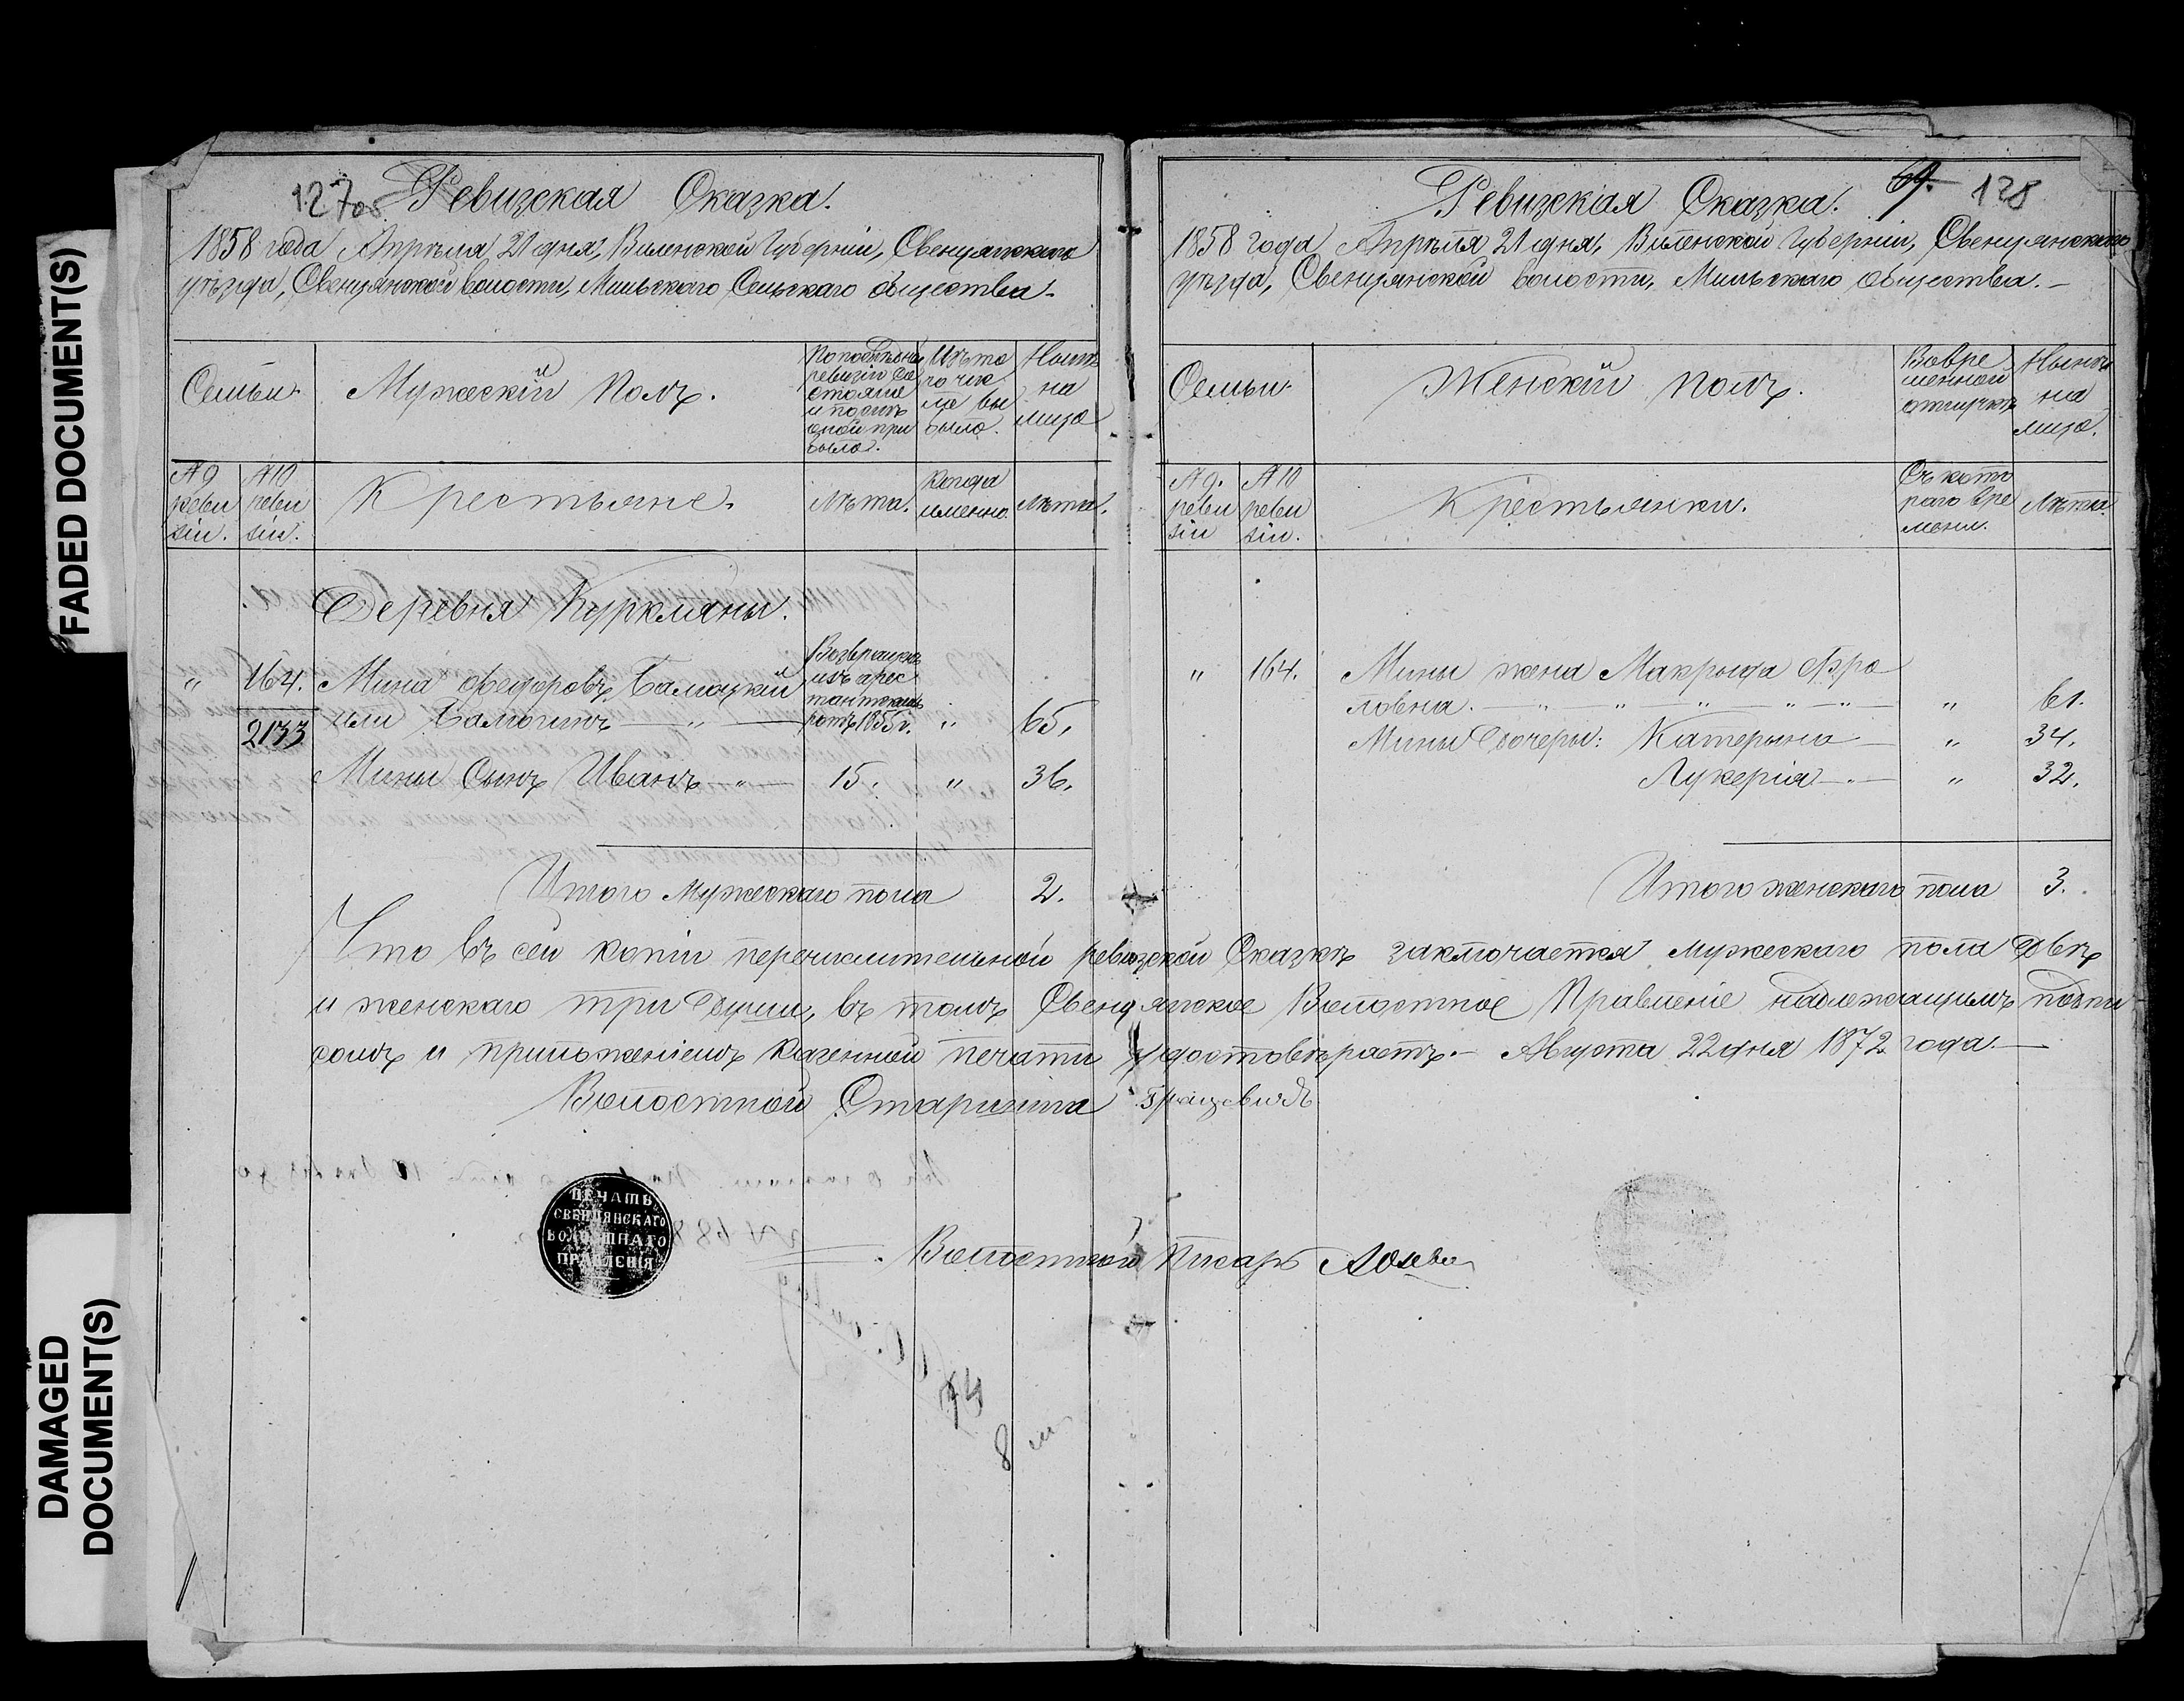 FADED DOCUMENT(S)
DAMAGED
DOCUMENT(S)
127об
Ревизская Сказка.
1858 года Апрѣля 21 дня, Виленской Губерніи, Свенцянскаго
уѣзда, Свенцянской волости, Мильскаго Сельскаго общества.
Семьи.
Мужескій полъ.
По последней
ревизіи со
стояло
и послѣ
оной при
было.
Изъ то
го чис
ла вы
было.
Нынѣ
на
лицо
№9
реви
зіи.
№10
реви
зіи.
Крестьяне.
Лѣта.
Когда
именно.
Лѣта.
Деревня Куркляны.
" 164. Мина Федоровъ Балоцкій
Возвращенъ
изъ арес
тантскихъ
ротъ 1855 г.
2133 или — " — " 65,
Мины Сынъ Иванъ — " — 15. " 36.
Итого мужескаго пола 2.
64. 128
Ревизская Сказка.
1858 года Апрѣля 21 дня, Виленской Губерніи, Свенцянскаго
уѣзда, Свенцянской волости, Мильскаго общества. —
Семьи.
Женскій полъ.
Во вре
менной
отлучкѣ
Нынѣ
на
лицо.
№ 9.
реви
зіи
№10
реви
зіи.
Крестьянки.
Съ кото
раго вре
мени.
Лѣта.
" 164. Мины жена Макрыда Фро
ловна. — " — " — " — " — " — " 61.
Мины Дочеры: Катерына — " 34.
Лукерія — " — " 32.
Итого женскаго пола 3.
Что въ сей копіи перечислительной ревизской Сказкѣ заключается мужескаго пола двѣ
и женскаго три души, въ томъ Свенцянское Волостное Правленіе надлежащимъ подпи
сомъ и приложеніемъ казенной печати удостовѣряетъ. — Августа 22 дня 1872 года. —
Волостной Старшина
ПЕЧАТЬ
СВЕНЦЯНСКАГО
ВОЛОСТНАГО
ПРАВЛЕНІЯ
Волостной Писарь